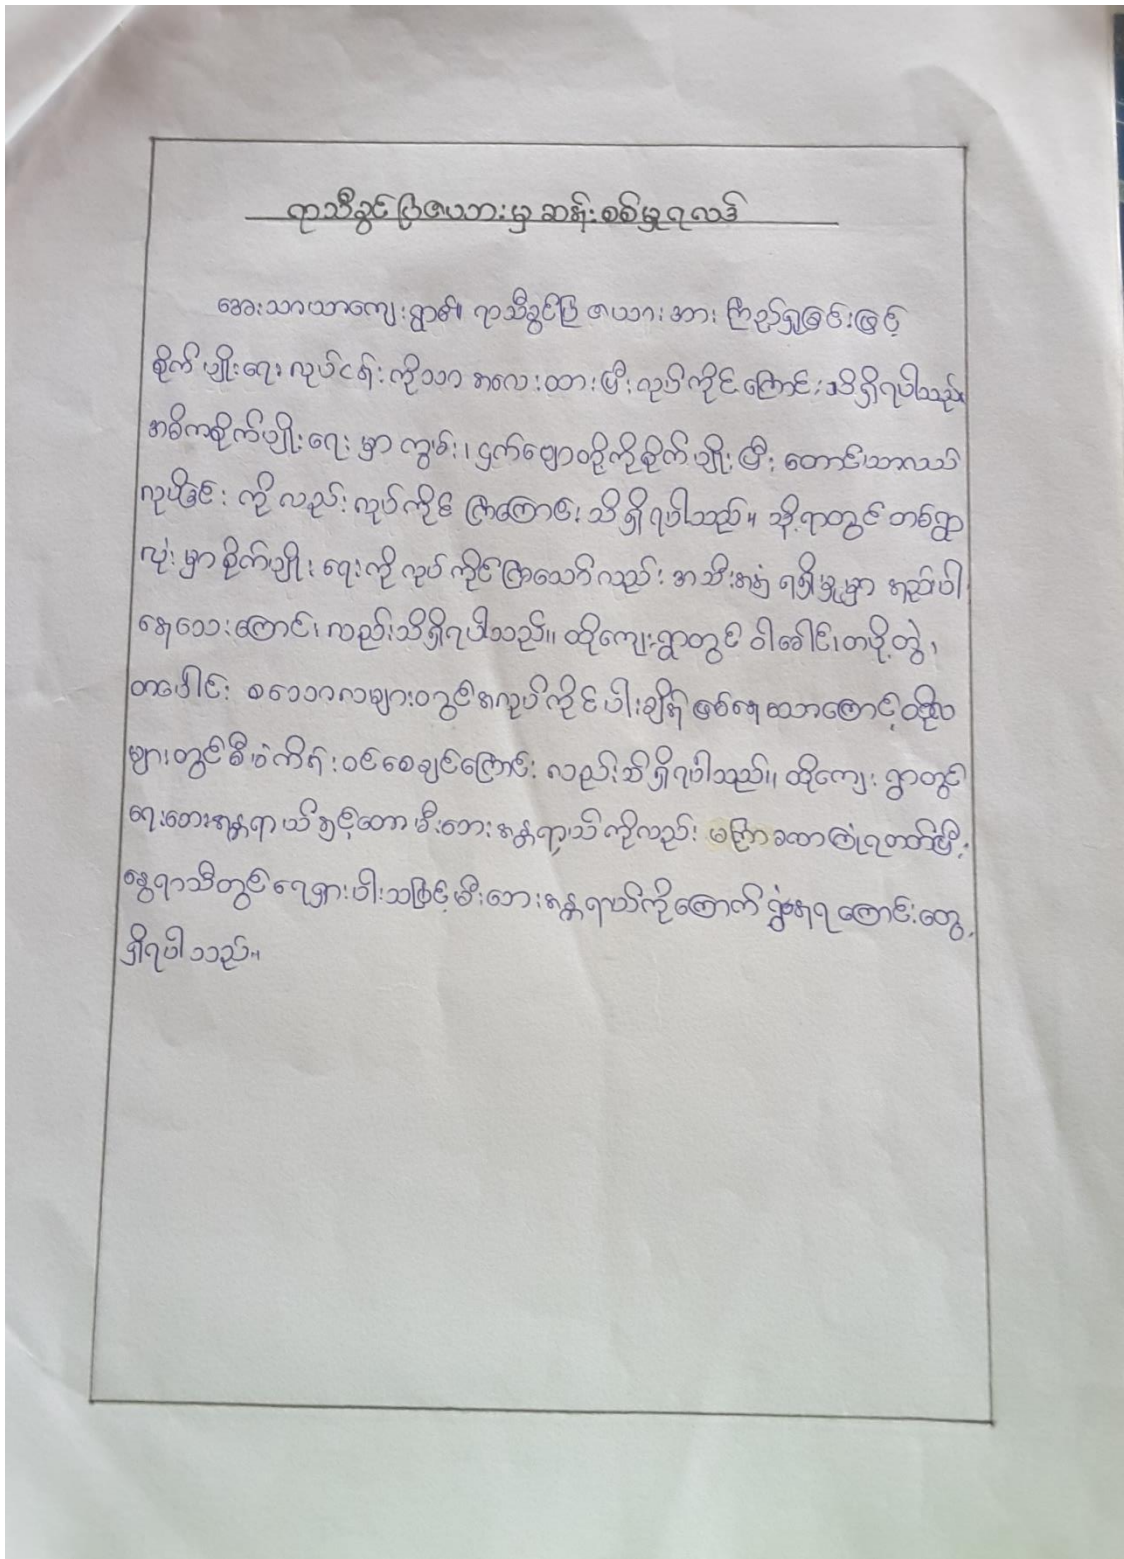 ရာသီခွင်ပြဇယားမှ ဆန်းစစ်မှုရလဒ်
အေးသာယာကျေးရွာ၏ ရာသီခွင်ပြ ဇယား အား ကြည့်ရှုခြင်းဖြင့်
စိုက်ပျိုးရေး လုပ်ငန်းကိုသာ အလေးထားပြီး လုပ်ကိုင်ကြောင်း သိရှိရပါသည်။
အဓိကစိုက်ပျိုးရေး မှာ ကွမ်း၊ ငှက်ပျောတို့ကိုစိုက်ပျိုးပြီး တောင်ယာလယ်
လုပ်ခြင်း ကိုလည်း လုပ်ကိုင် ကြကြောင်း သိရှိရပါသည်။ သို့ရာတွင် တစ်ရွာ
လုံး မှာ စိုက်ပျိုးရေးကို လုပ်ကိုင်ကြသော်လည်း အသီးအနှံ ရရှိမှုမှာ နည်းပါး
နေသေးကြောင်း လည်းသိရှိရပါသည်။ ထိုကျေးရွာတွင် ဝါခေါင်၊တပို့တွဲ၊
တပေါင်း စသောလများတွင်အလုပ်ကိုင်ပါးချိန်ဖြစ်နေသောကြောင့်ထိုလ
များတွင်စီမံကိန်းဝင်စေချင်ကြောင်း လည်းသိရှိရပါသည်။ ထိုကျေး ရွာတွင်
ရေဘေးအန္တရာယ်နှင့်တော မီးဘေးအန္တရာယ်ကိုလည်း မကြာခဏကြုံရတတ်ပြီး
နွေရာသီတွင်ရေရှားပါးသဖြင့်မီးဘေးအန္တရာယ်ကိုကြောက်ရွံ့နေရကြောင်းတွေ့
ရှိရပါသည်။